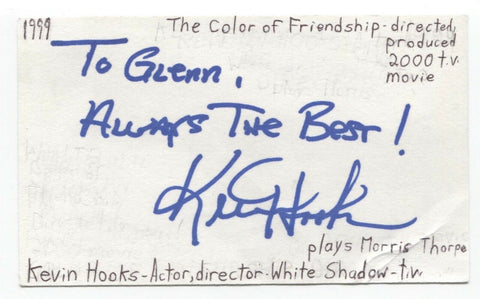 1999
The Color of Friendship - directed,
produced
2000 t.v.
movie
To Glenn,
Always The Best!
Kevin Hooks
plays Morris Thorpe
Kevin Hooks-Actor, director-White Shadow-t.v.